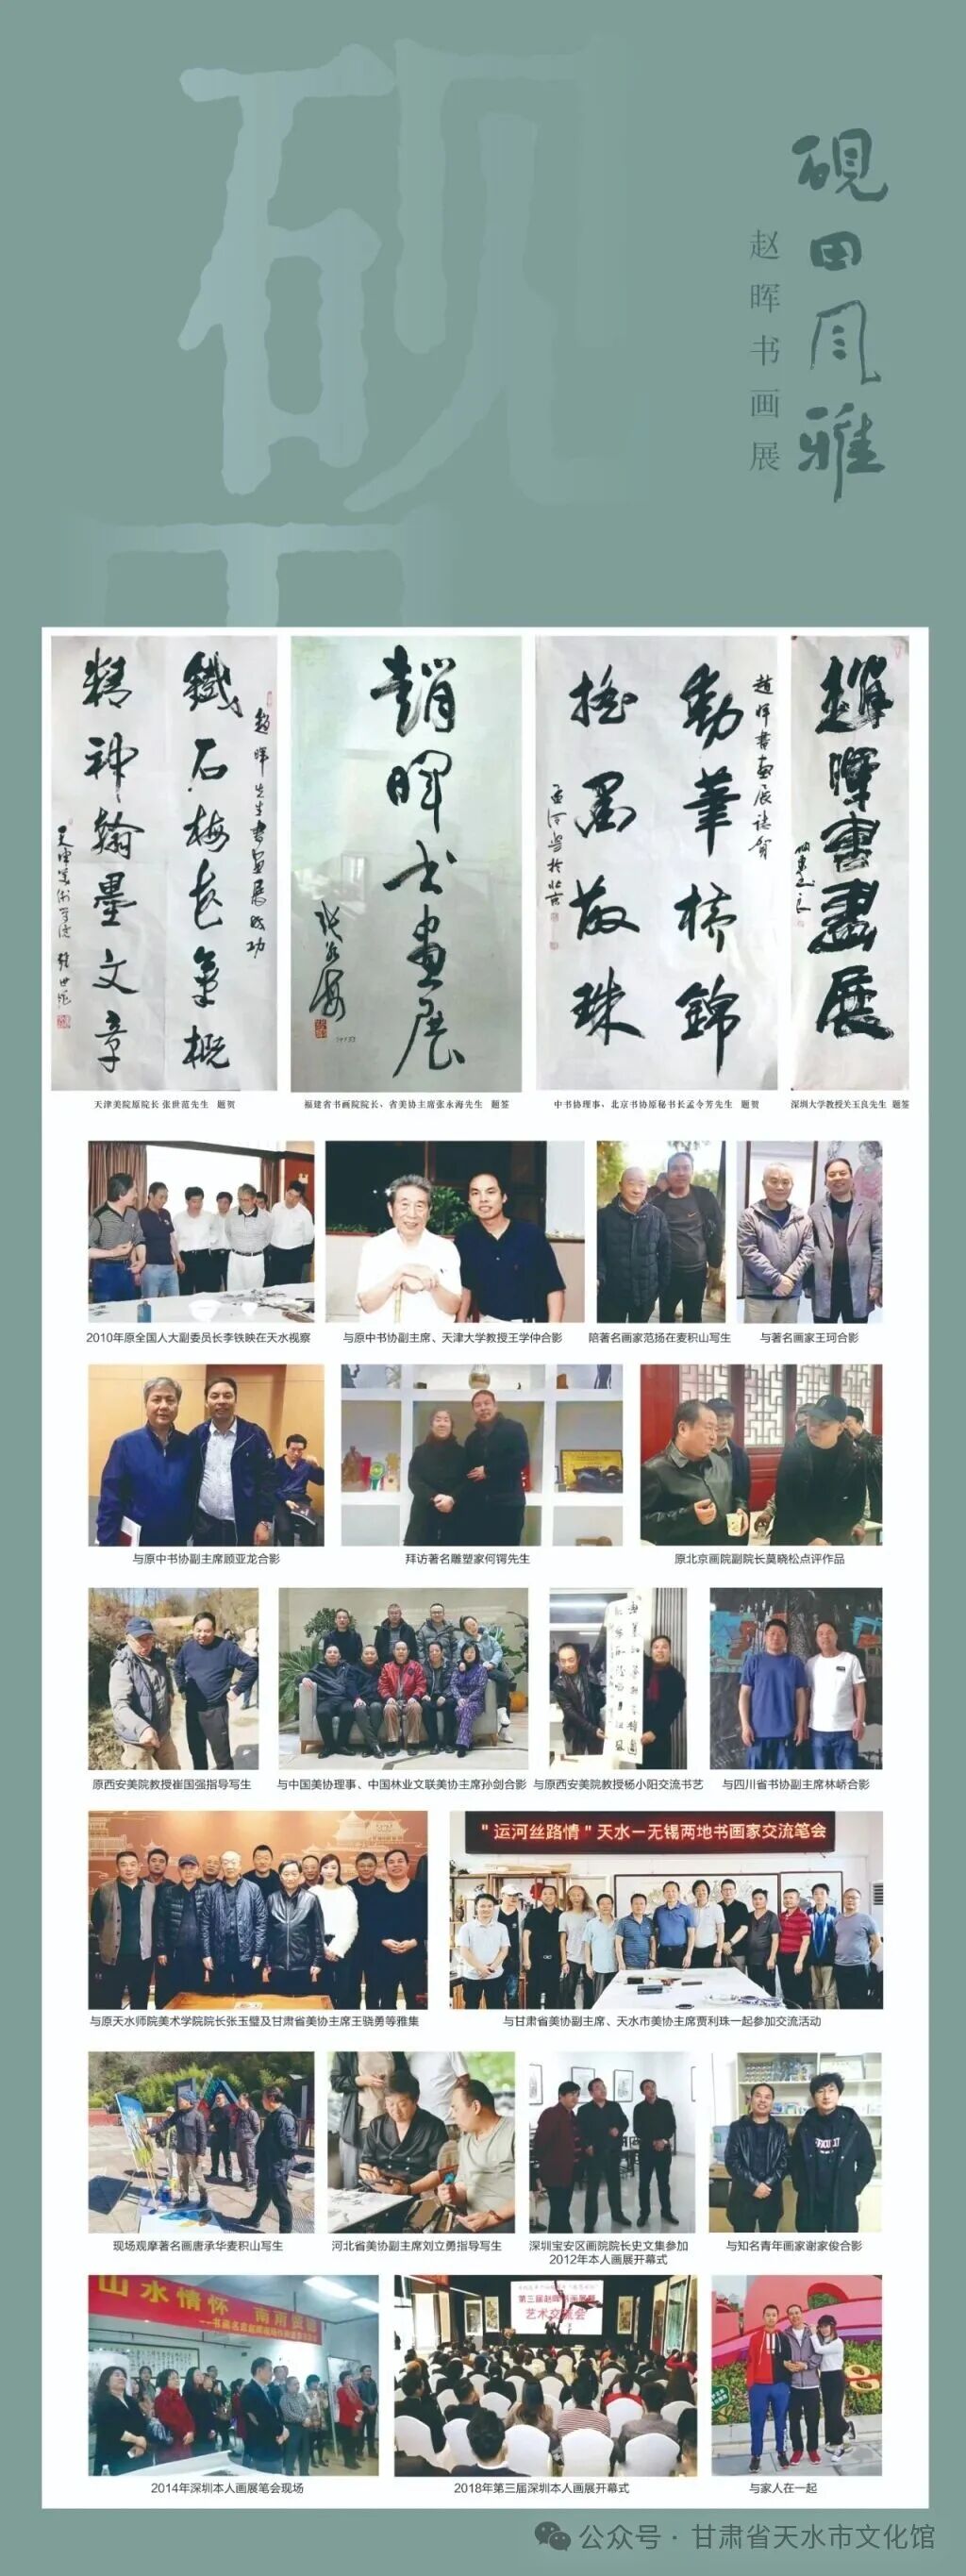 砚田风雅
赵晖书画展
赵晖先生书画展成功
鐵石梅花氣概
精神翰墨文章
趙暉书画展
趙暉書畫展誌賀
動筆橫錦
搖墨散珠
趙暉書畫展
天津美院原院长 张世范先生 题贺
福建省书画院院长、省美协主席张永海先生 题签
中书协理事、北京书协原秘书长孟令芳先生 题贺
深圳大学教授关玉良先生 题签
2010年原全国人大副委员长李铁映在天水视察
与原中书协副主席、天津大学教授王学仲合影
陪著名画家范扬在麦积山写生
与著名画家王珂合影
与原中书协副主席顾亚龙合影
拜访著名雕塑家何锷先生
原北京画院副院长莫晓松点评作品
原西安美院教授崔国强指导写生
与中国美协理事、中国林业文联美协主席孙剑合影
与原西安美院教授杨小阳交流书艺
与四川省书协副主席林峤合影
"运河丝路情"天水—无锡两地书画家交流笔会
与原天水师院美术学院院长张玉璧及甘肃省美协主席王骁勇等雅集
与甘肃省美协副主席、天水市美协主席贾利珠一起参加交流活动
现场观摩著名画唐承华麦积山写生
河北省美协副主席刘立勇指导写生
深圳宝安区画院院长史文集参加
2012年本人画展开幕式
与知名青年画家谢家俊合影
山水情怀
第三届赵晖书画展暨
艺术交流会
2014年深圳本人画展笔会现场
2018年第三届深圳本人画展开幕式
与家人在一起
公众号 · 甘肃省天水市文化馆